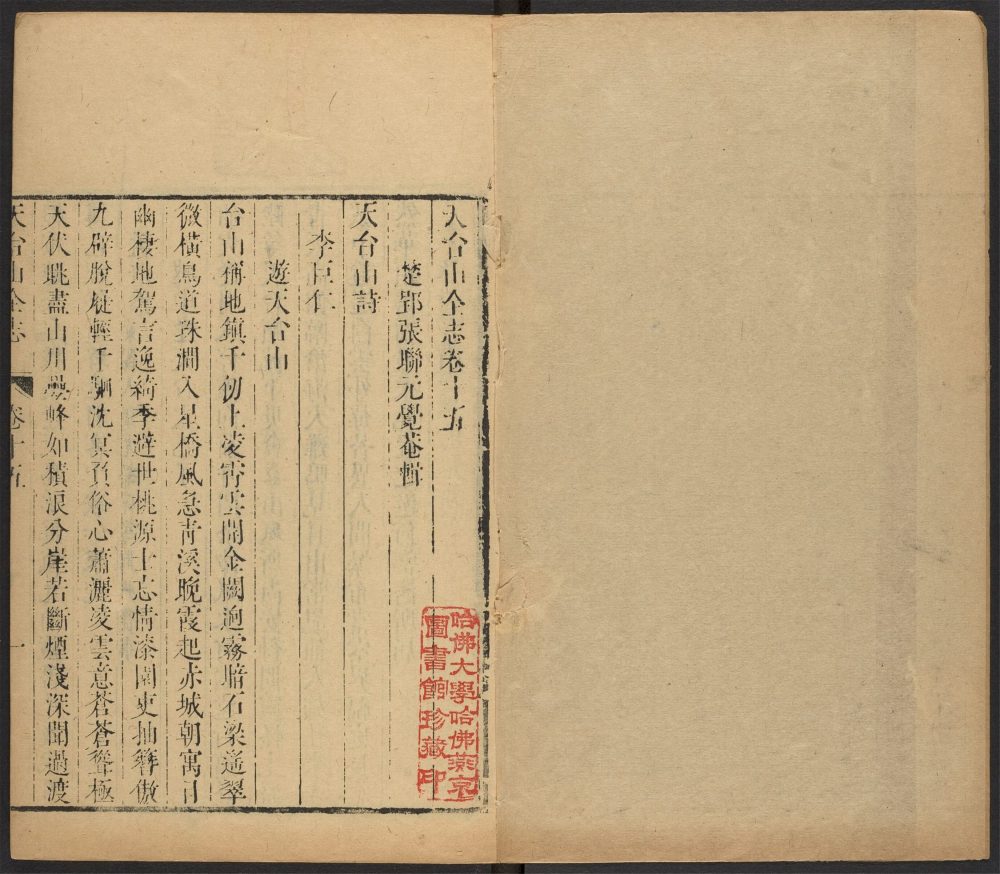 天台山全志卷十五
楚郢張聯元覺菴輯
天台山詩
李巨仁
遊天台山
台山稱地鎮千仞上凌霄雲開金闕迥霧暗石梁遙翠
微橫鳥道珠澗入星橋風急青溪晚霞起赤城朝寓目
幽棲地駕言逸綺季避世桃源士忘情漆園吏抽簪傲
九辟脫屣輕千駟沈冥負俗心蕭灑凌雲意蒼蒼聳極
天伏眺盡山川疊峰如積浪分崖若斷煙淺深聞過渡
天台山全志
卷十五
一
哈佛大學哈佛燕京
圖書館珍藏印